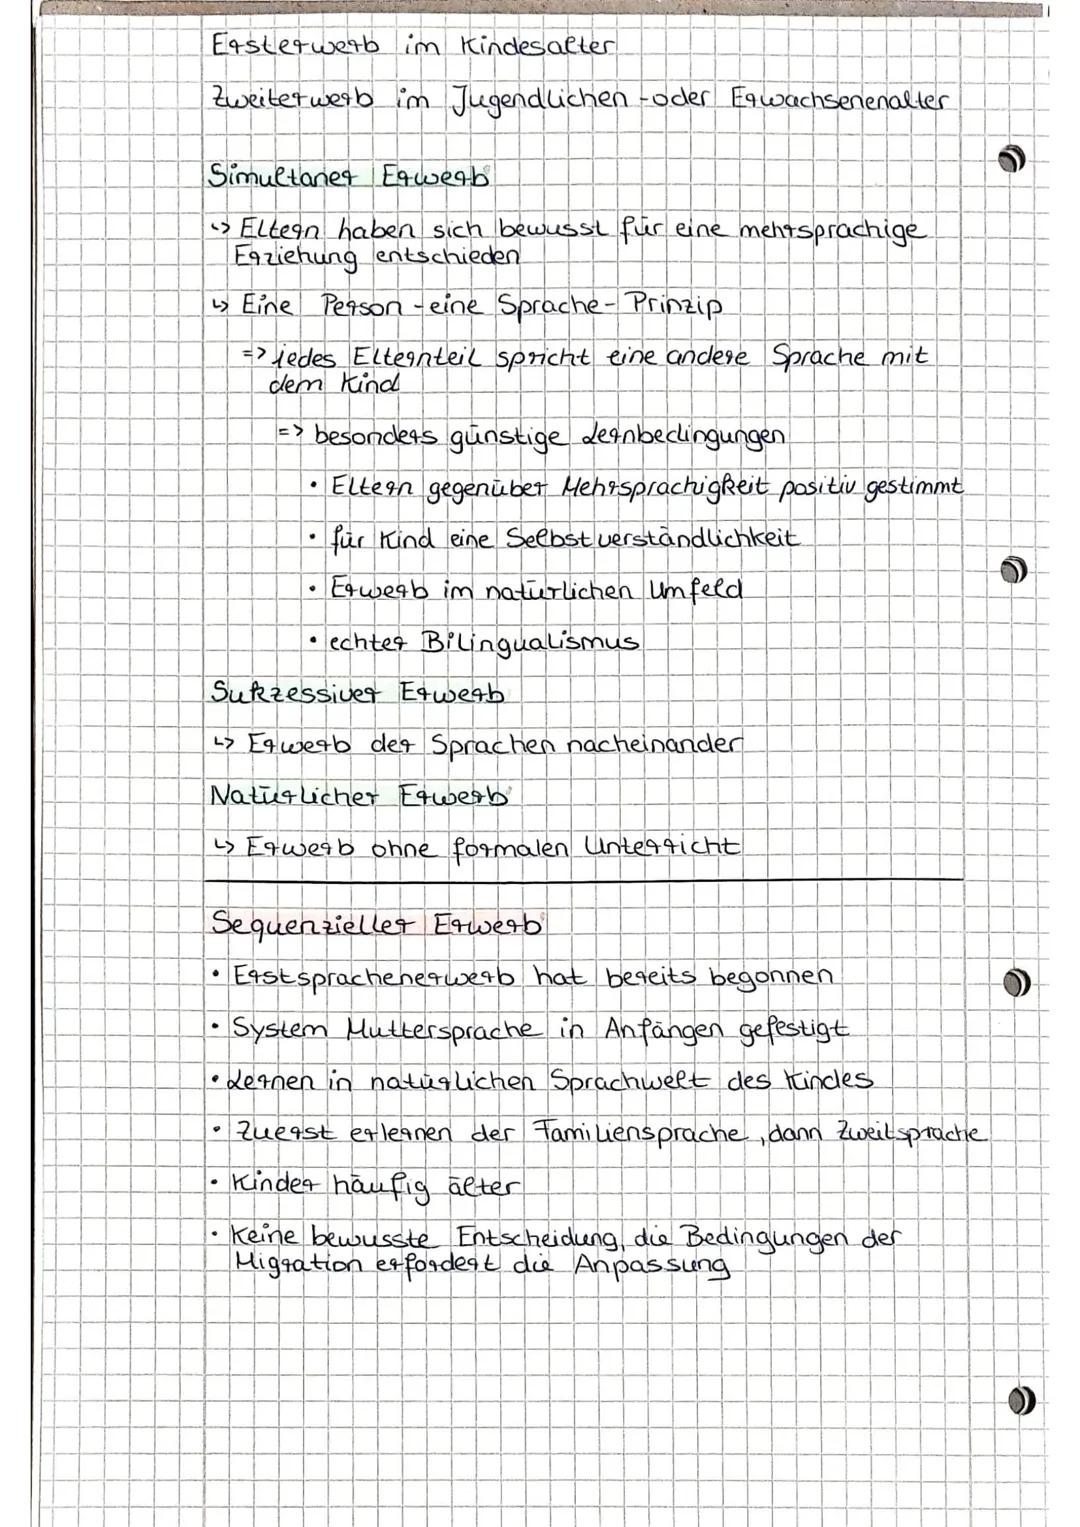 Ersterwerb im Kindesalter
Zweiterwerb im Jugendlichen-oder Erwachsenenalter
Simultaner Erwerb
↳ Eltern haben sich bewusst für eine mehrsprachige
Erziehung entschieden
↳ Eine Person-eine Sprache-Prinzip
=> jedes Elternteil spricht eine andere Sprache mit
dem Kind
=> besonders günstige Lernbedingungen
• Eltern gegenüber Mehrsprachigkeit positiv gestimmt
• für Kind eine Selbstverständlichkeit
• Erwerb im natürlichen Umfeld
• echter Bilingualismus
Sukzessiver Erwerb
↳ Erwerb der Sprachen nacheinander
Natürlicher Erwerb
↳ Erwerb ohne formalen Unterricht
Sequenzieller Erwerb
• Erstsprachenerwerb hat bereits begonnen
• System Muttersprache in Anfängen gefestigt
• Lernen in natürlichen Sprachwelt des Kindes
• Zuerst erlernen der Familiensprache, dann Zweitsprache
• Kinder häufig älter
• Keine bewusste Entscheidung, die Bedingungen der
Migration erfordert die Anpassung